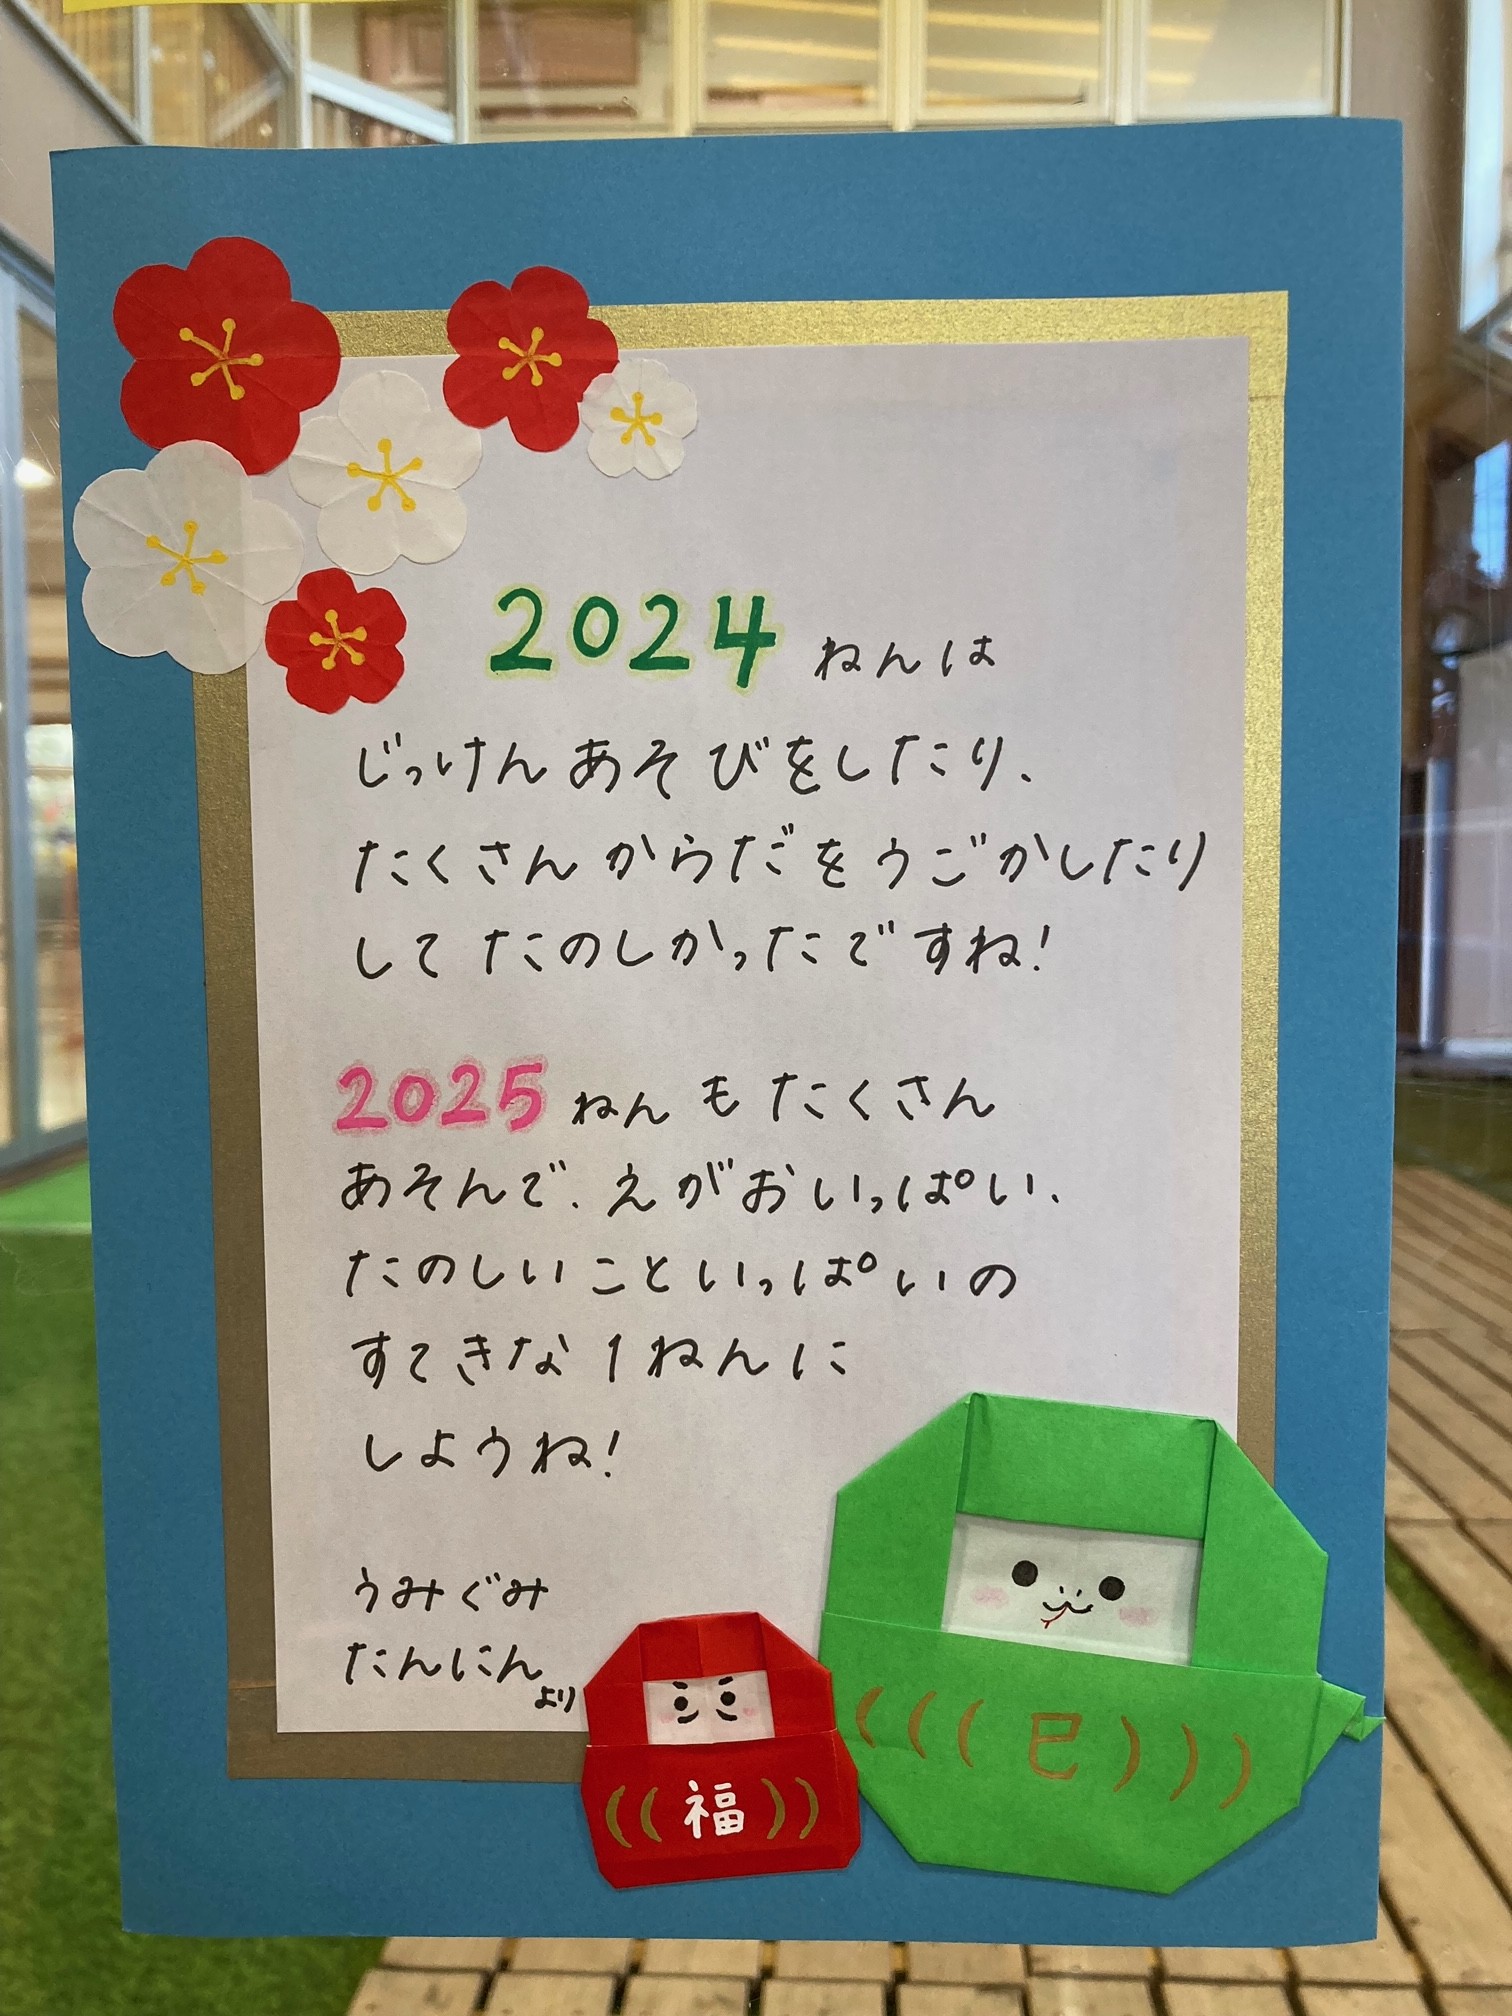 2024ねんは
じっけんあそびをしたり、
たくさんからだをうごかしたり
してたのしかったですね！
2025ねんもたくさん
あそんで、えがおいっぱい、
たのしいこといっぱいの
すてきな1ねんに
しようね！
うみぐみ
たんにんより
福
巳